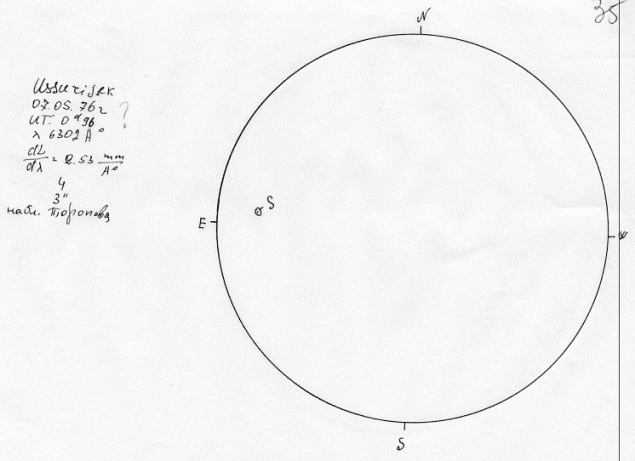 35
N
Ussurijsk
07.05.76г
UT. 0ᵈ96
?
λ 6302 A°
dL/dλ = 2.53 mm/A°
4
3"
набл. Торопова
S
E
W
S